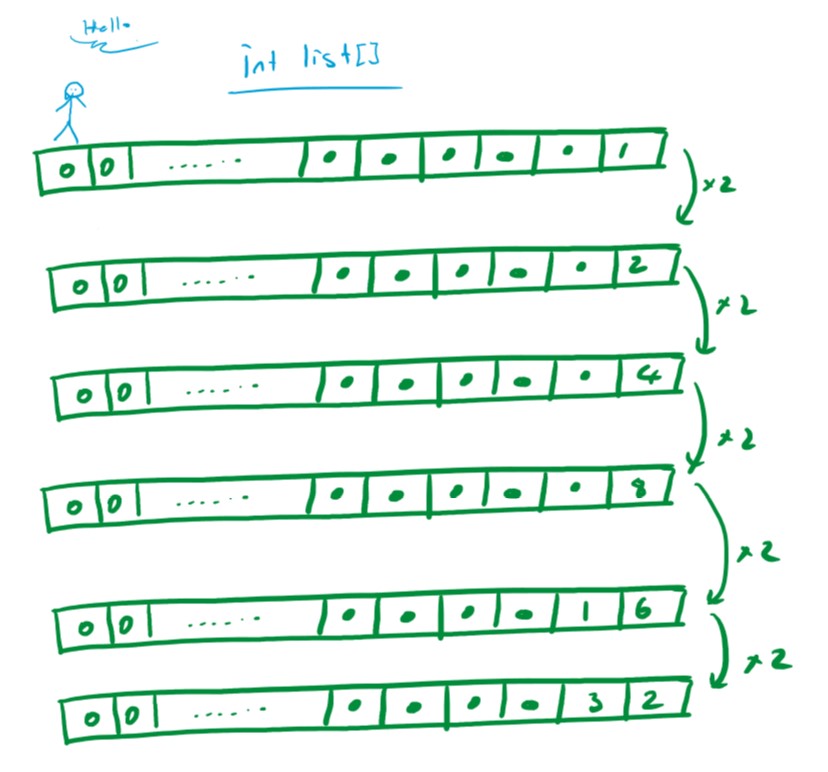 Hello
int list[]
0 0 ...... 0 0 0 0 0 1
×2
0 0 ...... 0 0 0 0 0 2
×2
0 0 ...... 0 0 0 0 0 4
×2
0 0 ...... 0 0 0 0 0 8
×2
0 0 ...... 0 0 0 0 1 6
×2
0 0 ...... 0 0 0 0 3 2